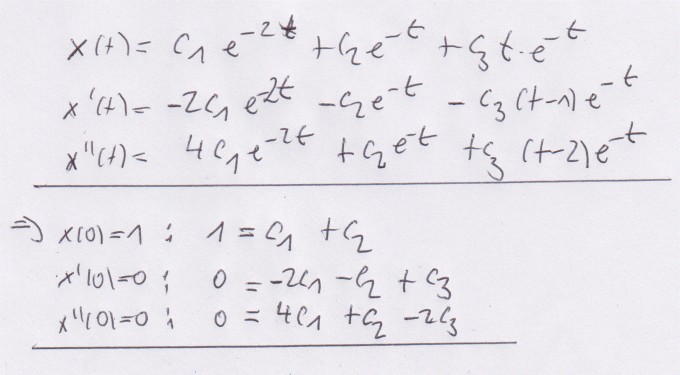 x(t) = C₁ e^{-2t} + C₂ e^{-t} + C₃ t · e^{-t}
x'(t) = -2C₁ e^{2t} - C₂ e^{-t} - C₃ (t-1) e^{-t}
x''(t) = 4 C₁ e^{-2t} + C₂ e^{-t} + C₃ (t-2) e^{-t}
⇒ x(0)=1 : 1 = C₁ + C₂
x'(0)=0 : 0 = -2C₁ - C₂ + C₃
x''(0)=0 : 0 = 4C₁ + C₂ - 2C₃